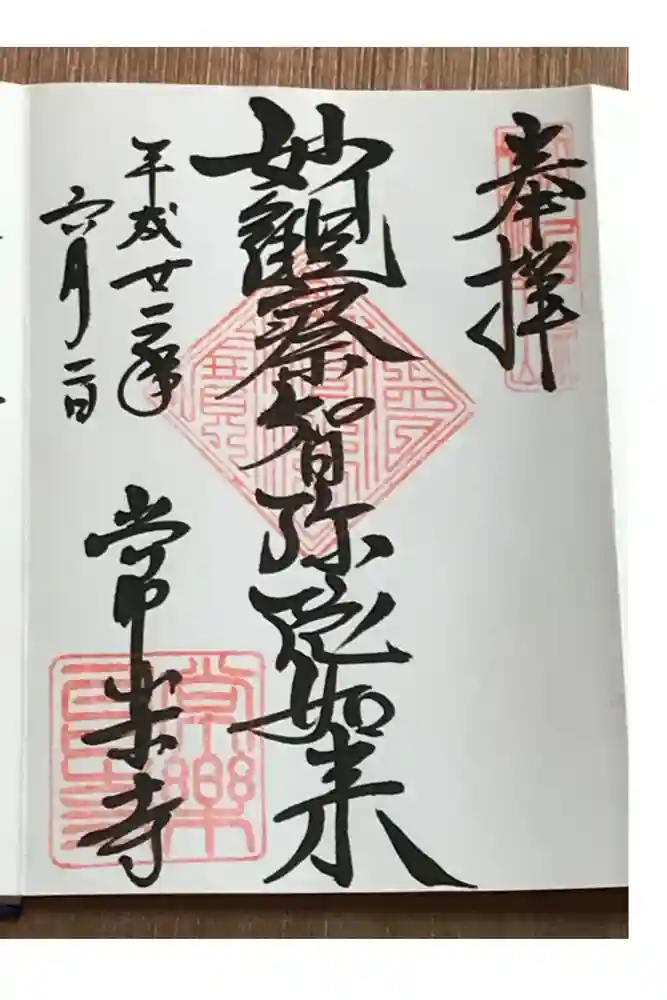 奉拝
妙観察智弥陀如来
平成廿二年
六月二日
常楽寺
常樂寺印